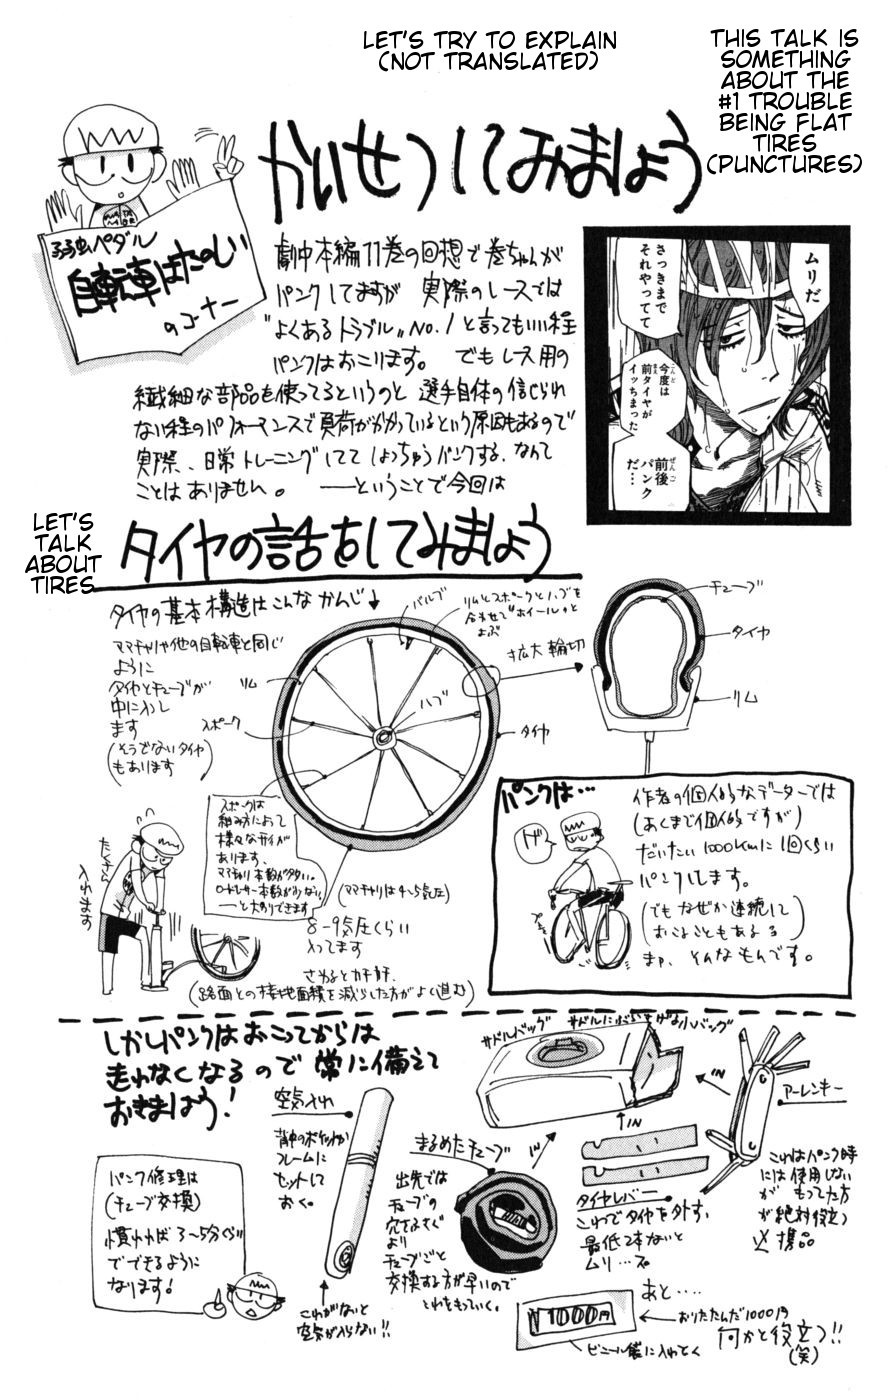 LET'S TRY TO EXPLAIN
(NOT TRANSLATED)
THIS TALK IS
SOMETHING
ABOUT THE
#1 TROUBLE
BEING FLAT
TIRES
(PUNCTURES)
かいせつしてみましょう
弱虫ペダル
自転車はたのしい
のコーナー
劇中本編11巻の回想で巻ちゃんが
パンクしてますが 実際のレースでは
"よくあるトラブル"NO.1と言ってもいい程
パンクはおこります。 でもレース用の
繊細な部品を使ってるというのと 選手自体の信じられ
ない程のパフォーマンスで負荷がかかっているという原因もあるので
実際、日常トレーニングしててしょっちゅうパンクする、なんて
ことはありません。 ――ということで今回は
ムリだ
さっきまで
それやってて
今度は
前タイヤが
イッちまった
前後
パンク
だ…
LET'S
TALK
ABOUT
TIRES
タイヤの話をしてみましょう
タイヤの基本構造はこんなかんじ↓
ママチャリや他の自転車と同じ
ように
タイヤとチューブが
中に入りし
ます
(そうでないタイヤ
もあります)
バルブ
リムとスポークとハブを
合わせて"ホイール"と
よぶ
リム
スポーク
ハブ
タイヤ
拡大輪切
チューブ
タイヤ
リム
スポークは
組み方によって
様々なサイが
あります、
ママチャリ本数が多い。
ロードレーサー本数が少ない
――と大別できます
たくさん
入れます
(ママチャリは4~5気圧)
8-9気圧くらい
入ってます
さわるとカチカチ、
(路面との接地面積を減らした方がよく進む)
パンクは…
ゲ
プシュ
作者の個人的なデーターでは
(あくまで個人的ですが)
だいたい1000kmに1回くらい
パンクします。
(でもなぜか連続して
おこることもある)
まァ、そんなもんです。
しかしパンクはおこってからは
走れなくなるので常に備えて
おきましょう!
空気入れ
背中のポケットか
フレームに
セットして
おく。
これがないと
空気が入らない!!
まるめたチューブ
出先では
チューブの
穴をふさぐ
より
チューブごと
交換する方が早いので
これをもっていく。
サドルバッグ
サドルにぶらさげる小バッグ
IN
IN
IN
タイヤレバー
これでタイヤを外す。
最低2本ないと
ムリ…
アーレンキー
これはパンク時
には使用しない
が もってた方
が絶対役立
つ携帯品
パンク修理は
(チューブ交換)
慣れれば3~5分ぐらい
でできるように
なります!
あと‥‥
¥1000円
←おりたたんだ1000円
何かと役立つ!!
(笑)
ビニール袋に入れとく